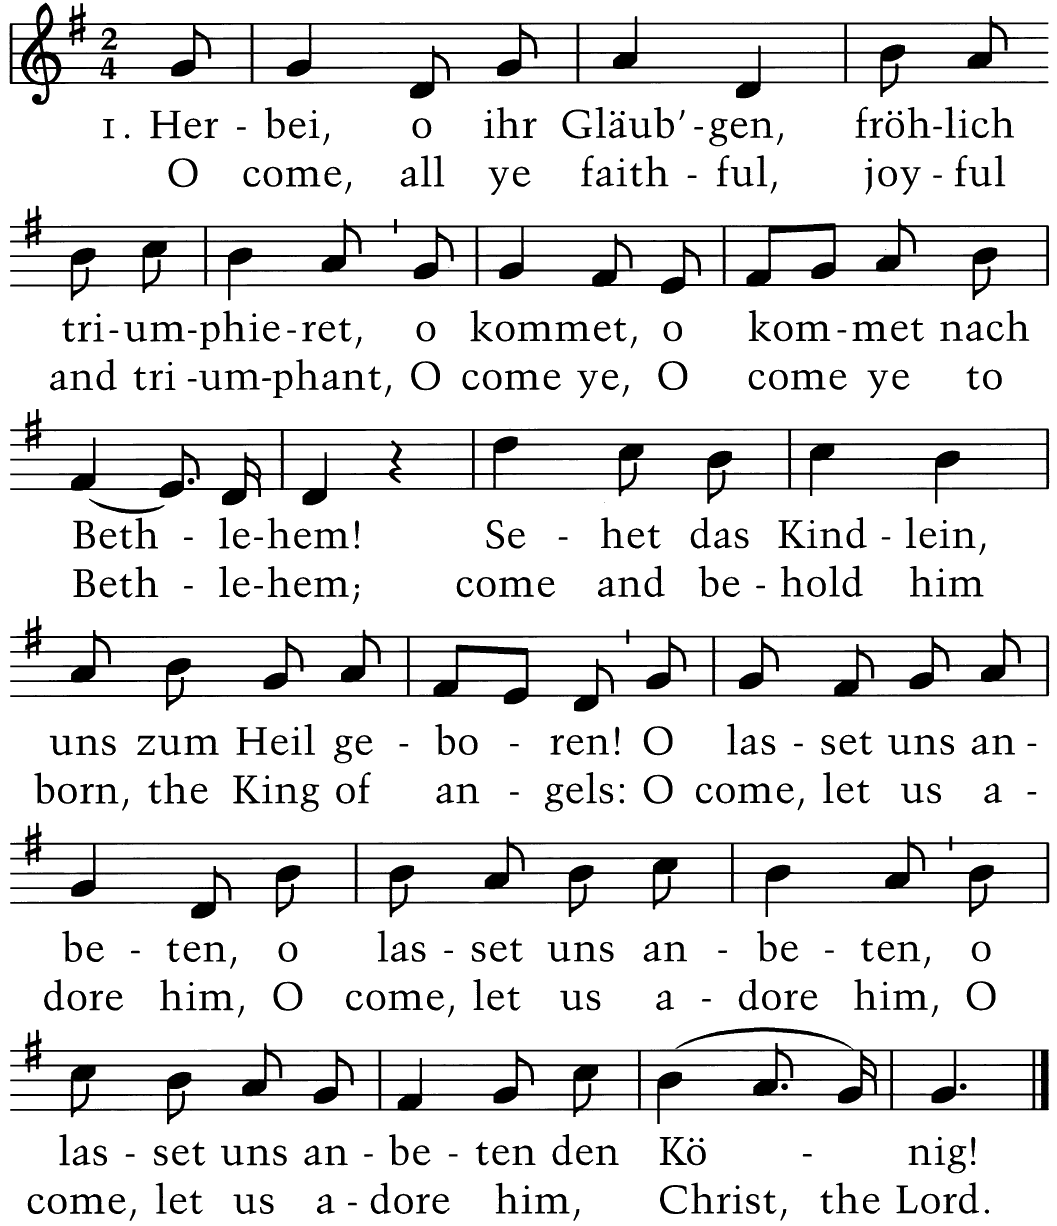 2
4
1. Her - bei, o ihr Gläub’-gen, fröh-lich
O come, all ye faith - ful, joy - ful
tri-um-phie-ret, o kommet, o kom-met nach
and tri-um-phant, O come ye, O come ye to
Beth - le-hem! Se - het das Kind - lein,
Beth - le-hem; come and be - hold him
uns zum Heil ge - bo - ren! O las - set uns an -
born, the King of an - gels: O come, let us a -
be - ten, o las - set uns an - be - ten, o
dore him, O come, let us a - dore him, O
las - set uns an - be - ten den Kö - nig!
come, let us a - dore him, Christ, the Lord.